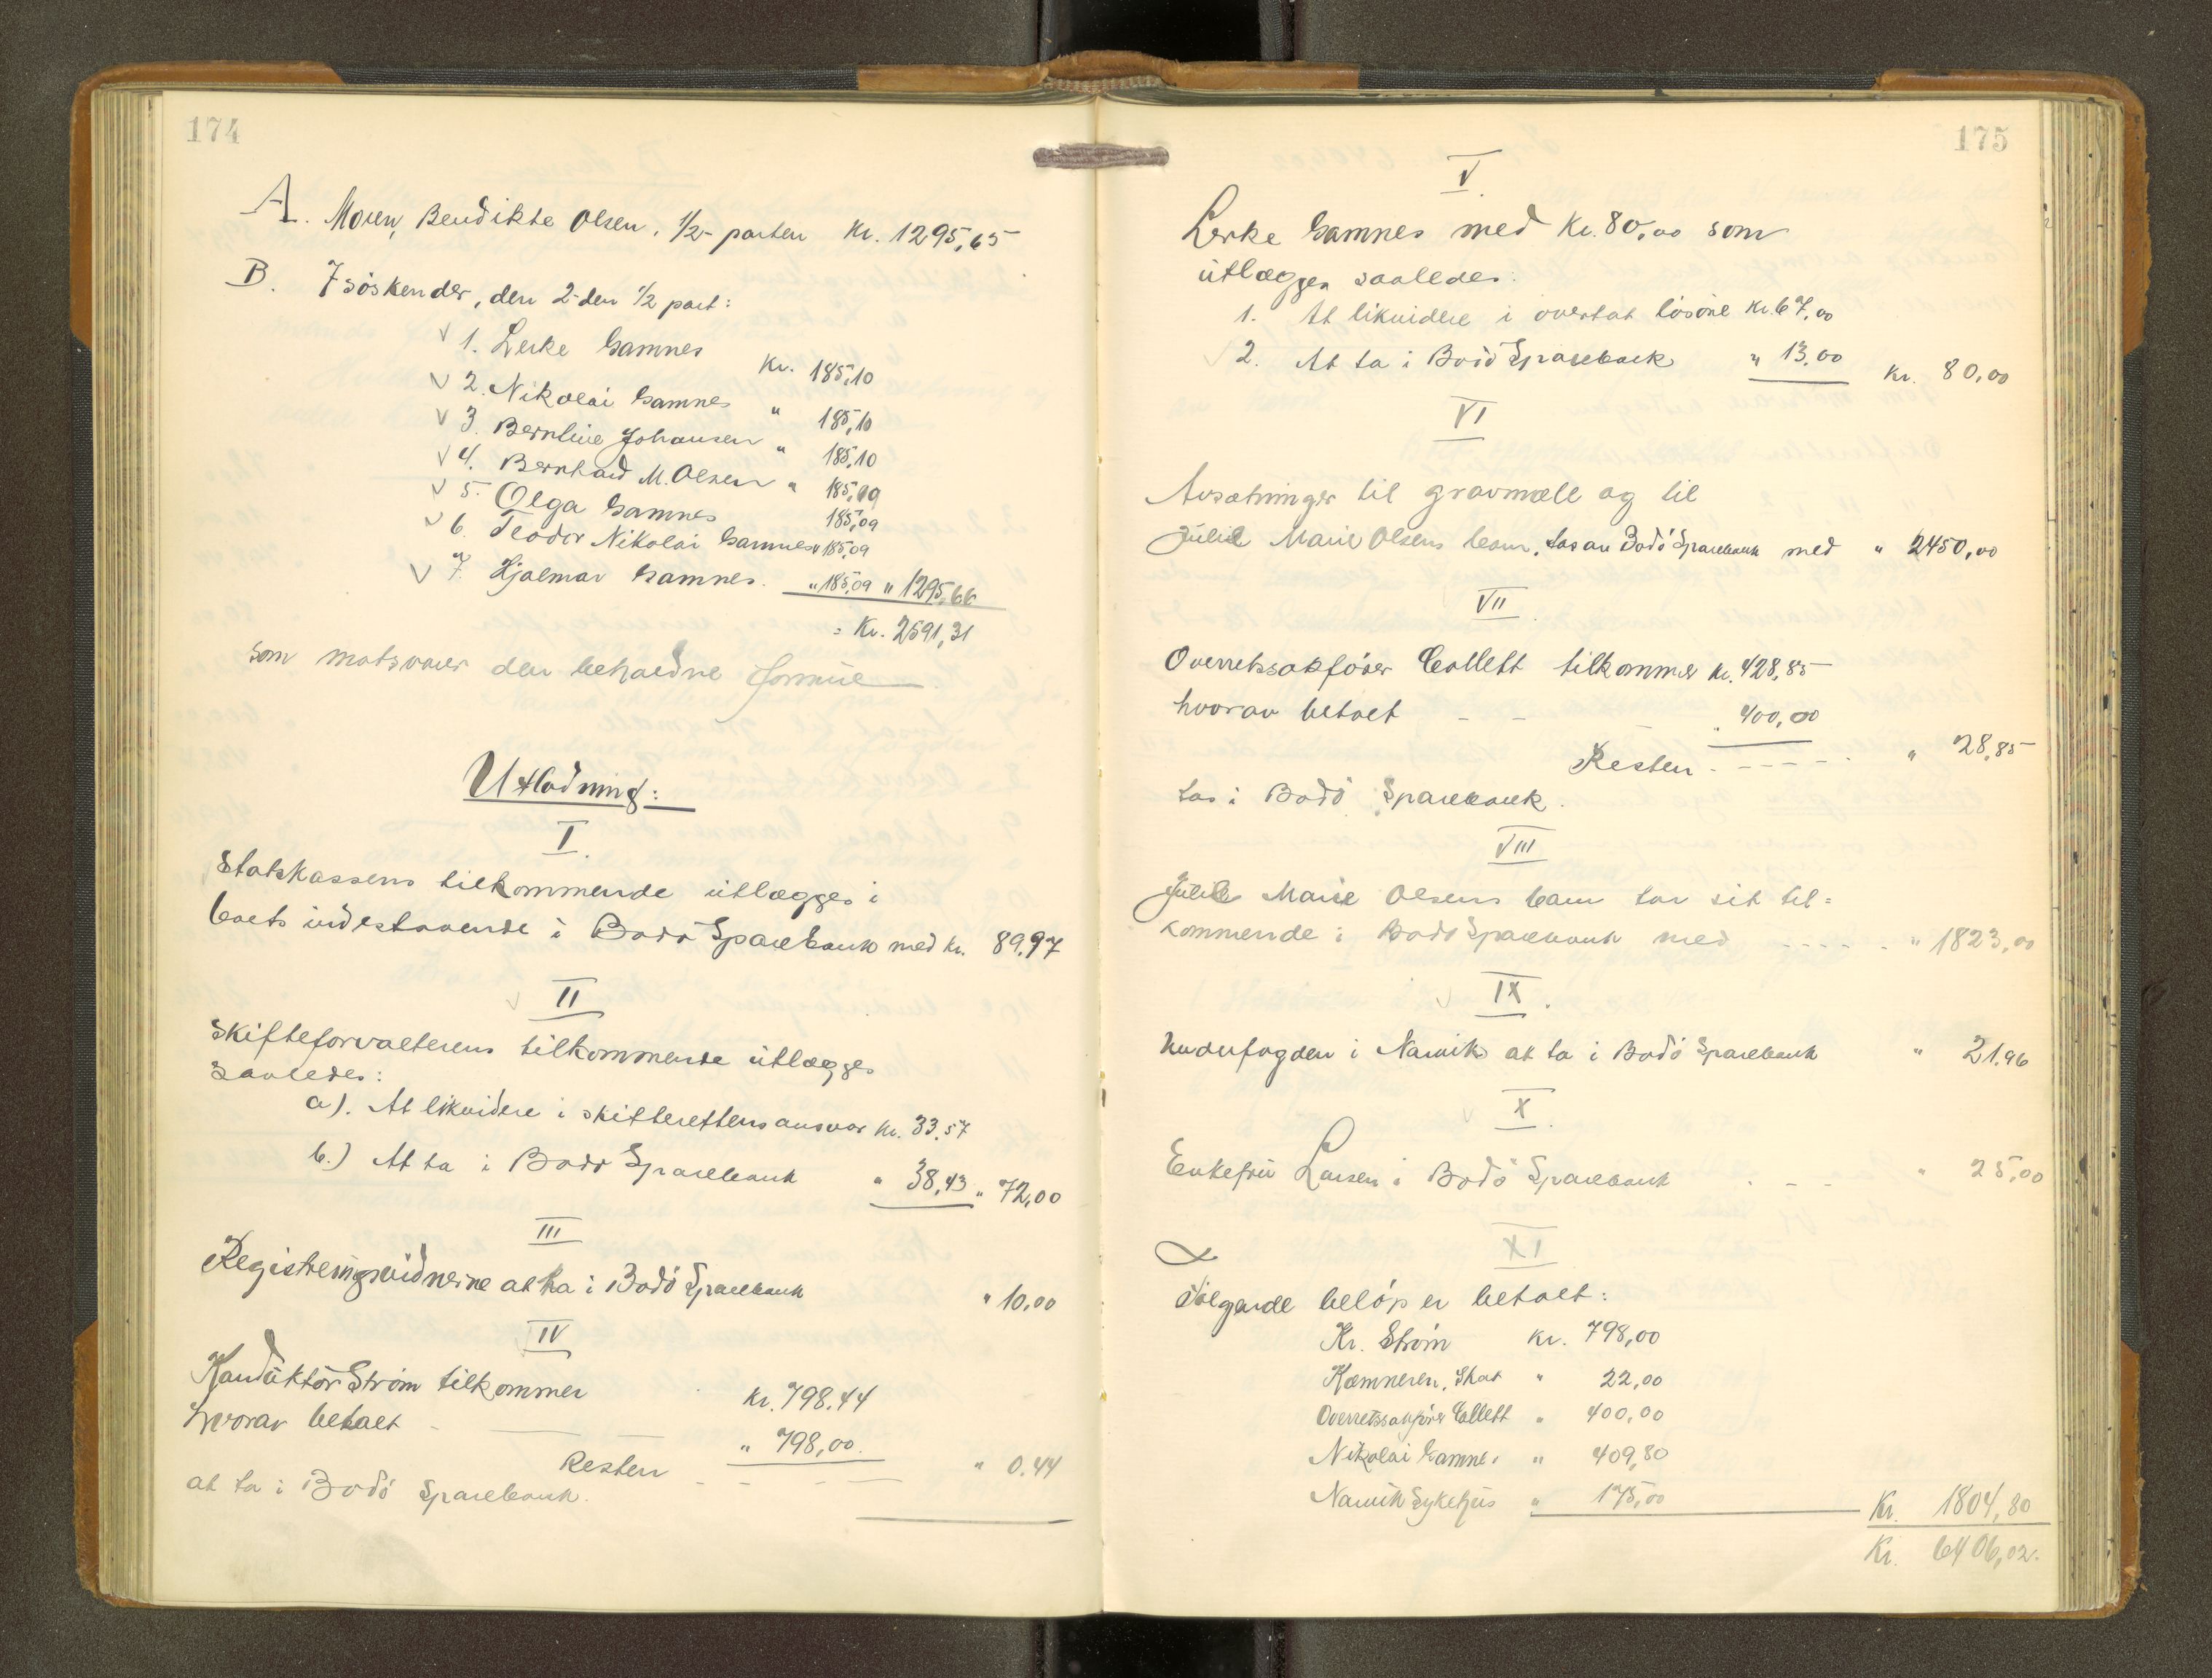 174
A. Moren, Bendikte Olsen, 1/2-parten Kr. 1295,65
B. 7 søskender, den 2-den 1/2 part:
1. Lerke Gamnes Kr. 185,10
2. Nikolai Gamnes " 185,10
3. Berntine Johansen " 185,10
4. Bernhard M. Olsen " 185,09
5. Olga Gamnes 185,09
6. Teodor Nikolai Gamnes " 185,09
7. Hjalmar Gamnes. " 185,09 " 1295,66
= Kr. 2591,31
som motsvarer den beholdne formue
Utlodning:
I.
Statskassens tilkommende utlægges i
boets indestaaende i Bodø Sparebank med kr. 89,97
II
Skifteforvalterens tilkommende utlægges
saaledes:
a). At likvidere i skifterettens ansvar kr. 33,57
b.) At ta i Bodø Sparebank " 38,43 " 72,00
III
Registreringsvidnerne at ta i Bodø Sparebank " 10,00
IV
Konduktør Strøm tilkommer Kr. 798.44
hvorav betalt - " 798,00.
Resten - - - " 0.44
at ta i Bodø Sparebank.
175
V.
Lerke Gamnes med Kr. 80,00 som
utlægges saaledes:
1. At likvidere i overtat løsøre Kr. 67,00
2. At ta i Bodø Sparebank " 13,00 Kr. 80,00
VI
Avsætninger til gravmæle og til
Julie Marie Olsens barn, tas av Bodø Sparebank med " 2450,00
VII.
Overretssakfører Collett tilkommer Kr. 428,85
hvorav betalt - - " 400,00
Resten - - - - - " 28,85
tas i Bodø Sparebank.
VIII
Julie Marie Olsens barn tar sit til=
kommende i Bodø Sparebank med - - - - " 1823,00
IX.
Underfogden i Narvik at ta i Bodø Sparebank " 21.96
X.
Enkefru Larsen i Bodø Sparebank - - - " 25,00
XI
Følgende beløp er betalt:
Kr. Strøm Kr. 798,00
Kæmneren, Skat " 22,00
Overretssakfører Collett " 400,00
Nikolai Gamnes " 409,80
Narvik Sykehus " 175,00 Kr. 1804,80
Kr. 6406,02.